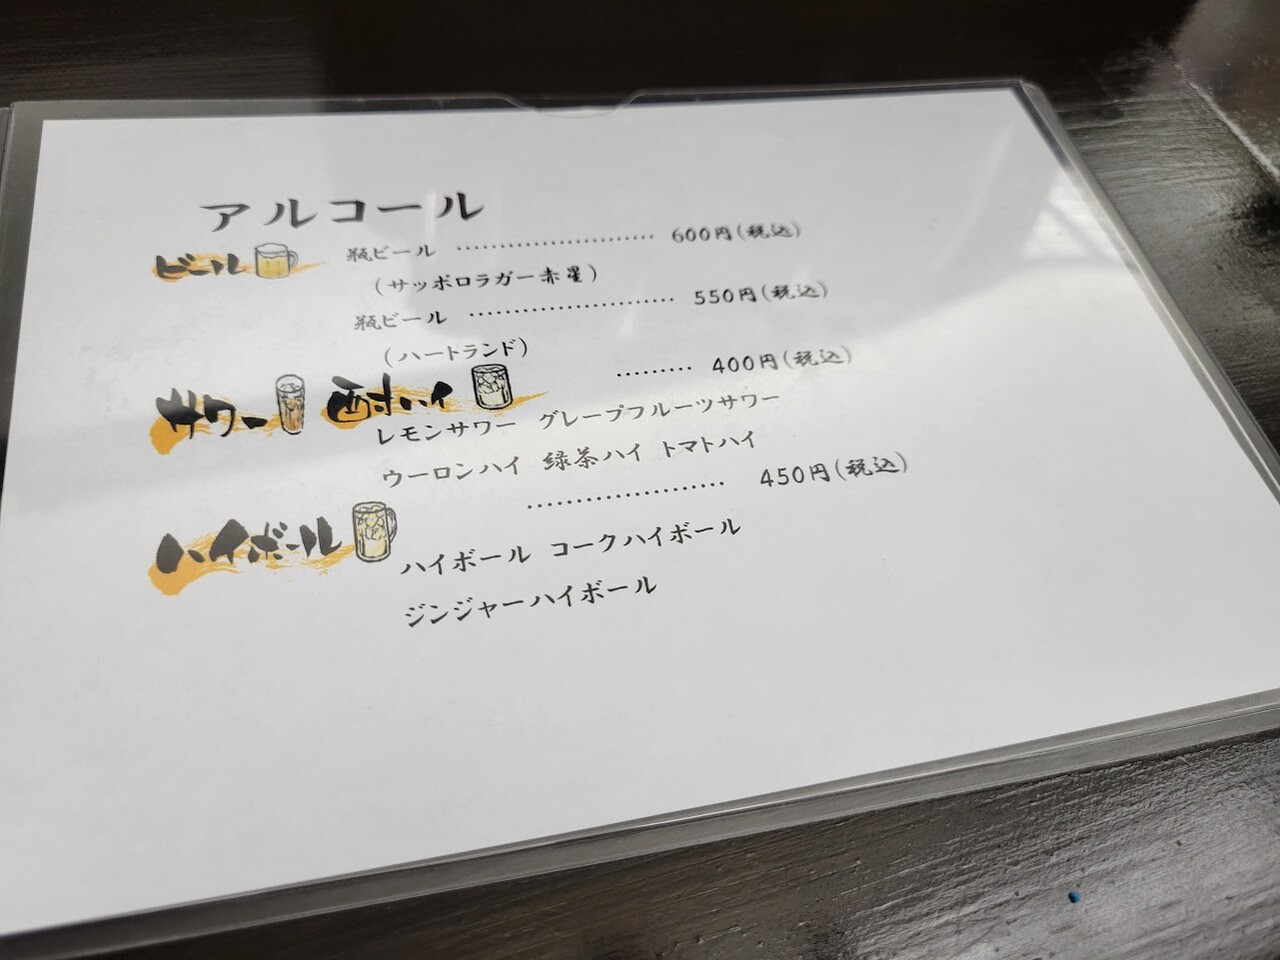 アルコール
ビール 瓶ビール ……………………… 600円(税込)
(サッポロラガー赤星)
瓶ビール ……………………… 550円(税込)
(ハートランド)
サワー 酎ハイ ……… 400円(税込)
レモンサワー グレープフルーツサワー
ウーロンハイ 緑茶ハイ トマトハイ
ハイボール ……………………… 450円(税込)
ハイボール コークハイボール
ジンジャーハイボール